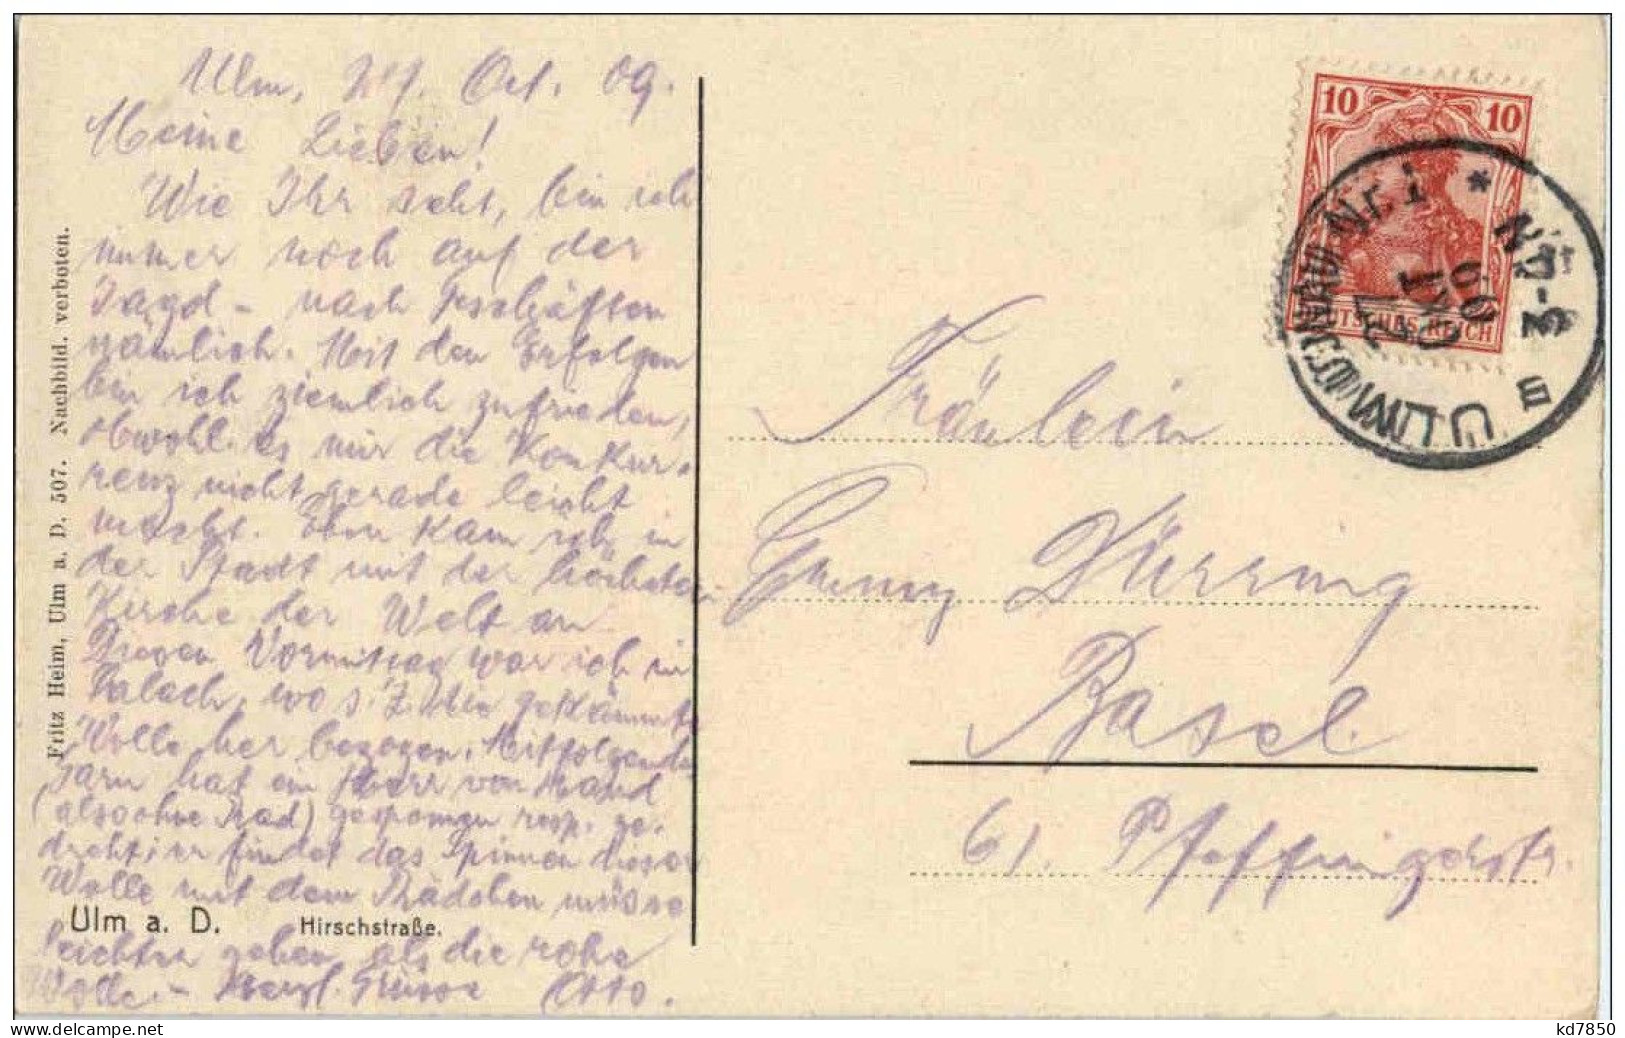 Ulm, Oct. 09.
Meine Lieben!
Wie Ihr seht, bin ich
immer noch auf der
Jagd – nach Geschäften
nämlich. Mit den Erfolgen
bin ich ziemlich zufrieden,
obwohl es mir die Konkur-
renz nicht gerade leicht
macht. Eben kam ich in
der Stadt mit der höchsten
Kirche der Welt an.
Diesen Vormittag war ich in
wo s. Z. gekämmte
Wolle her bezogen. Mitfolgende
Garn hat ein Herr von Hand
(also ohne Rad) gesponnen resp. ge-
dreht; er findet das Spinnen dieser
Wolle mit dem Rädchen müsse
leichter gehen als die rohe
Wolle. – Herzl. Grüsse Otto.
Ulm a. D. Hirschstraße.
Fritz Heim, Ulm a. D. 507. Nachbild. verboten.
10 10
DEUTSCHES REICH
ULM Nr. 1
* Nü. 3-
OKT
09
Fräulein
Emmy Dürring
Basel
61. Pfeffingerstr.
kd7850
www.delcampe.net